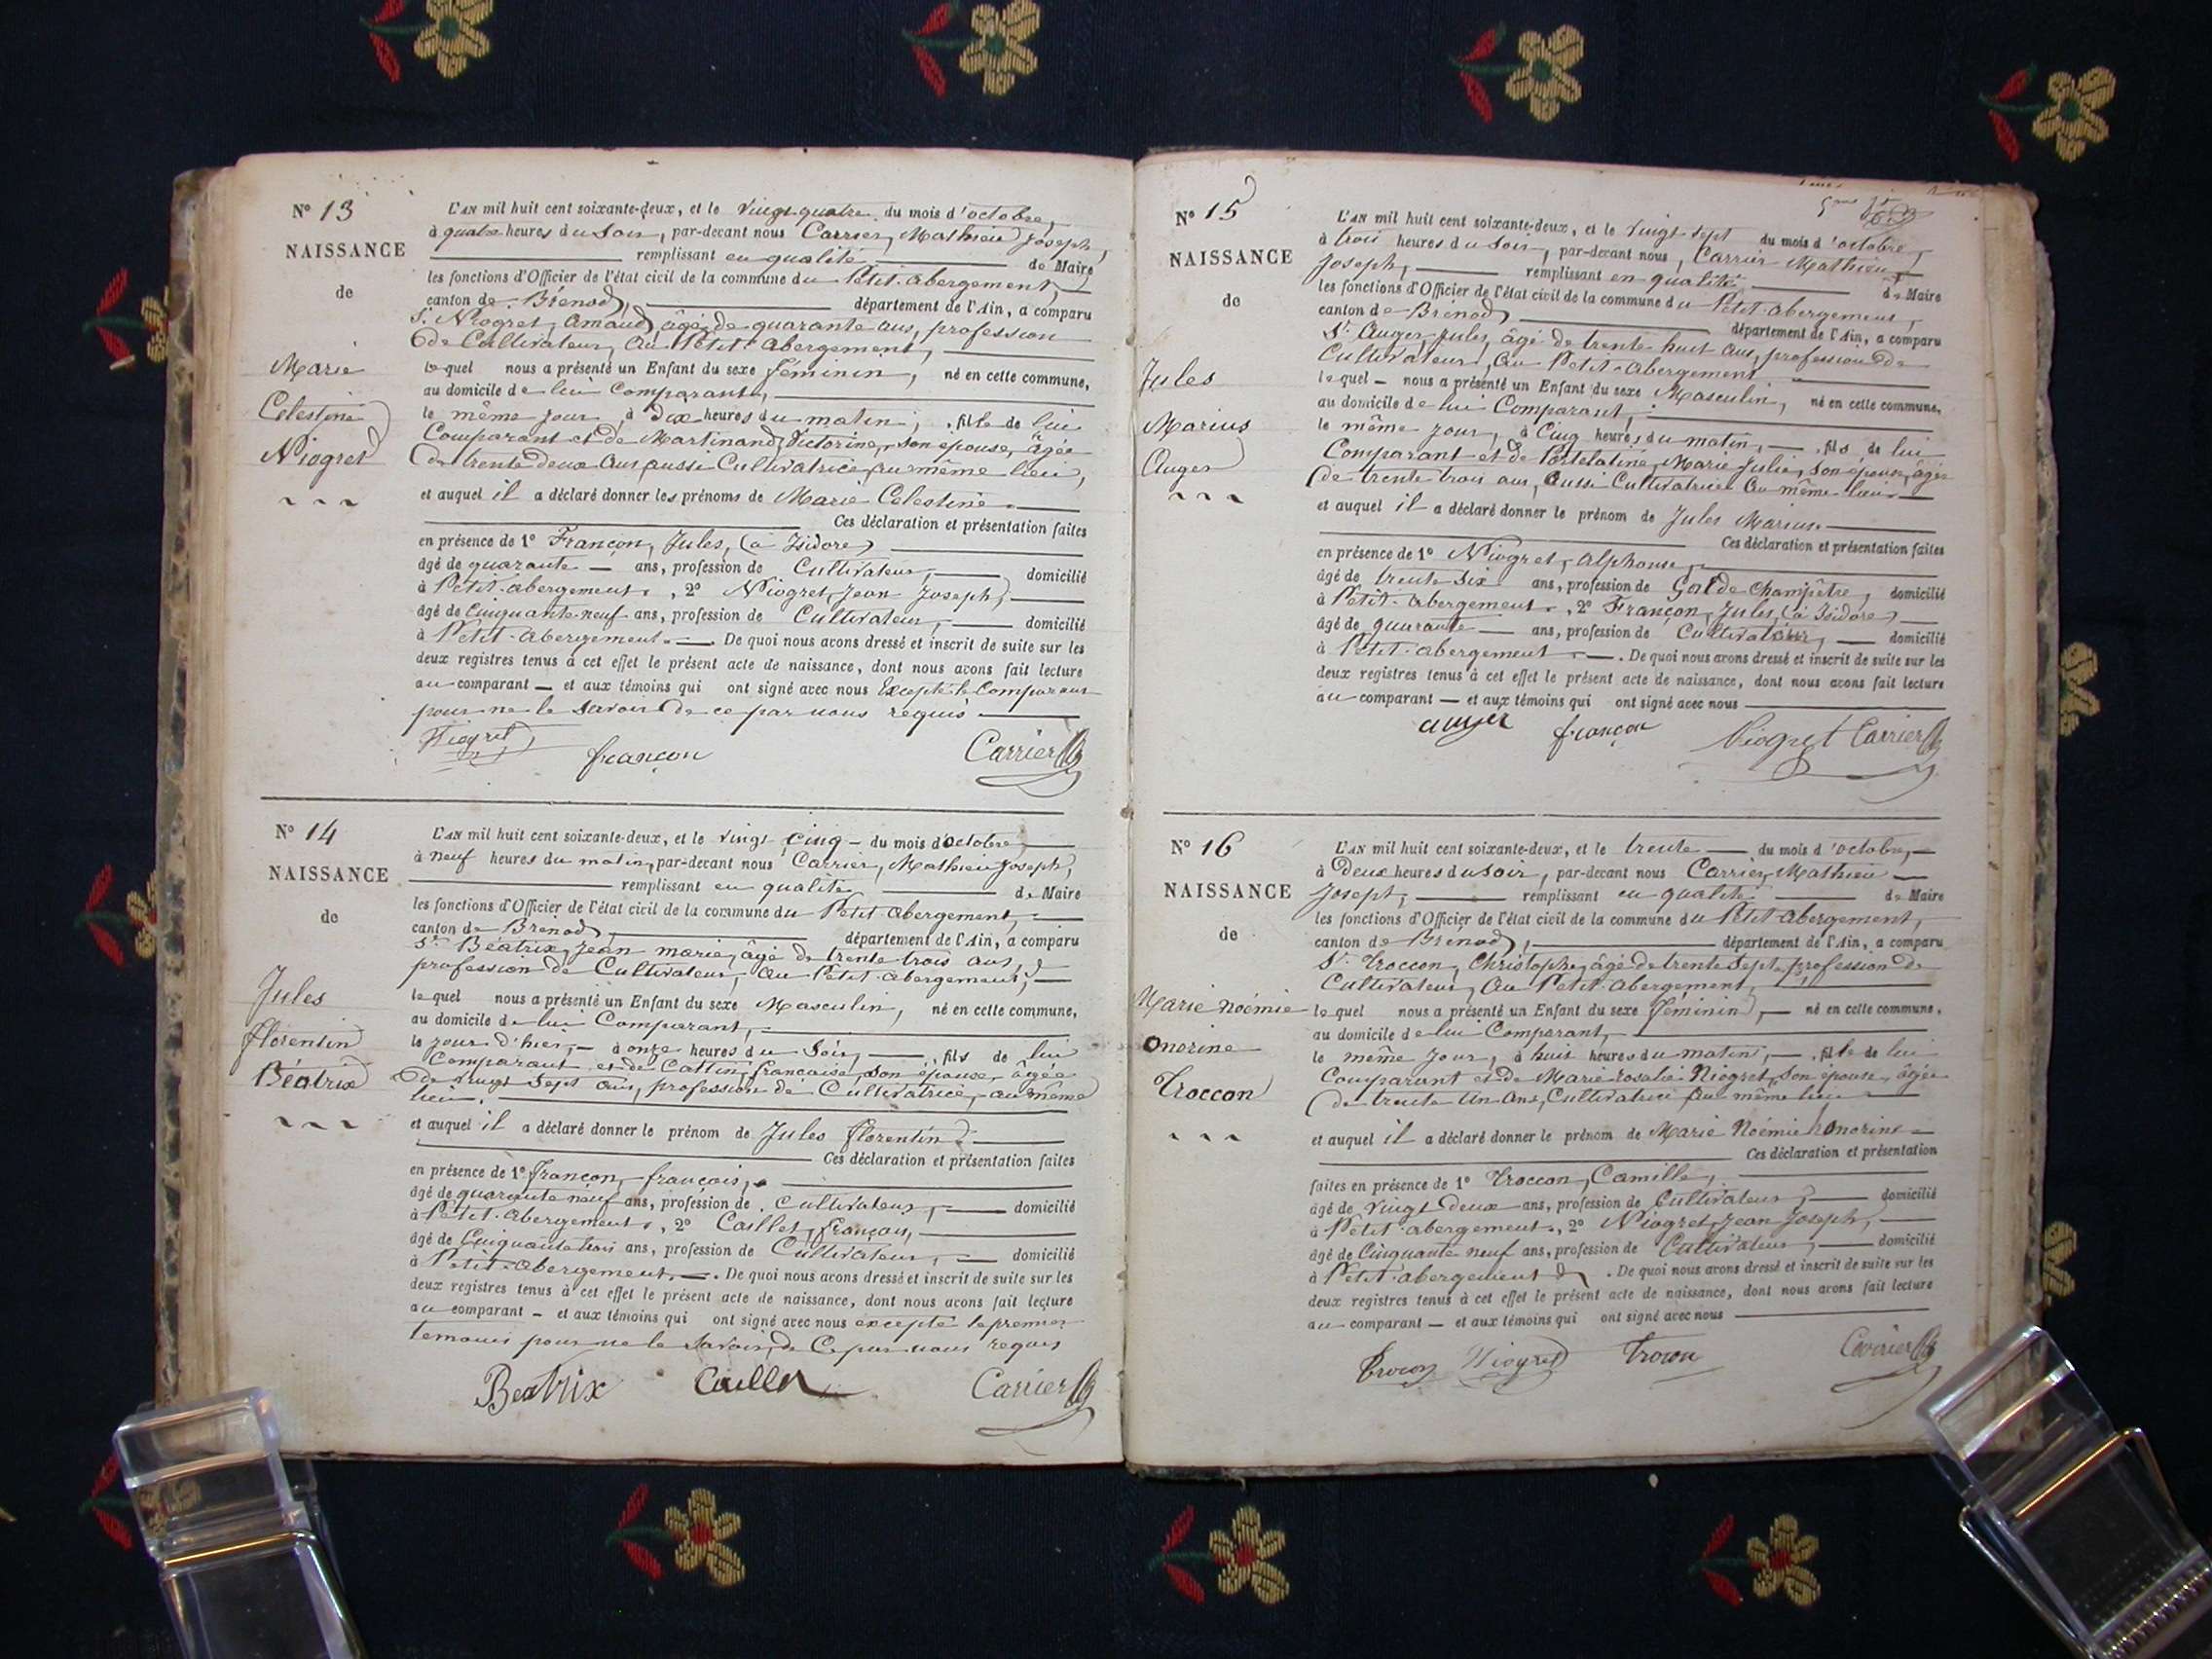 Nº 13
NAISSANCE
de
Marie
Celestine
Niogret
L'AN mil huit cent soixante-deux, et le vingt quatre du mois d'octobre,
à quatre heures du soir, par-devant nous Carrier, Mathieu Joseph,
remplissant en qualité de Maire
les fonctions d'Officier de l'état civil de la commune du Petit-abergement,
canton de Brénod, département de l'Ain, a comparu
Sr. Niogret, Amand, âgé de quarante ans, profession
de Cultivateur, au Petit-abergement,
lequel nous a présenté un Enfant du sexe féminin, né en cette commune,
au domicile de lui Comparant,
le même jour, à dix heures du matin, fille de lui
Comparant et de Martinand, Victorine, son épouse, âgée
de trente deux ans, aussi Cultivatrice, au même lieu,
et auquel il a déclaré donner les prénoms de Marie Celestine
Ces déclaration et présentation faites
en présence de 1º Françon, Jules, (à Isidore)
âgé de quarante ans, profession de Cultivateur, domicilié
à Petit-abergement, 2º Niogret, Jean Joseph,
âgé de Cinquante-neuf ans, profession de Cultivateur, domicilié
à Petit-abergement. De quoi nous avons dressé et inscrit de suite sur les
deux registres tenus à cet effet le présent acte de naissance, dont nous avons fait lecture
au comparant et aux témoins qui ont signé avec nous Excepté le Comparant
pour ne le savoir de ce par nous requis
Niogret
françon
Carrier
Nº 14
NAISSANCE
de
Jules
florentin
Béatrix
L'AN mil huit cent soixante-deux, et le vingt cinq du mois d'octobre,
à neuf heures du matin, par-devant nous Carrier, Mathieu Joseph,
remplissant en qualité de Maire
les fonctions d'Officier de l'état civil de la commune du Petit abergement,
canton de Brénod, département de l'Ain, a comparu
Sr. Béatrix, Jean marie, âgé de trente trois ans,
profession de Cultivateur, au Petit-abergement,
lequel nous a présenté un Enfant du sexe Masculin, né en cette commune,
au domicile de lui Comparant,
le jour d'hier, à onze heures du Soir, fils de lui
Comparant et de Cattin, francoise, son épouse, âgée
de vingt sept ans, profession de Cultivatrice, au même
lieu.
et auquel il a déclaré donner le prénom de Jules florentin
Ces déclaration et présentation faites
en présence de 1º françon, françois,
âgé de quarante neuf ans, profession de Cultivateur, domicilié
à Petit-abergement, 2º Caillet, françois,
âgé de Cinquante trois ans, profession de Cultivateur, domicilié
à Petit-abergement. De quoi nous avons dressé et inscrit de suite sur les
deux registres tenus à cet effet le présent acte de naissance, dont nous avons fait lecture
au comparant et aux témoins qui ont signé avec nous excepté le premier
temoin pour ne le Savoir, de Ce par nous requis
Beatrix
Carrier
Nº 15
NAISSANCE
de
Jules
Marius
Auger
L'AN mil huit cent soixante-deux, et le vingt sept du mois d'octobre,
à trois heures du soir, par-devant nous, Carrier Mathieu
Joseph, remplissant en qualité de Maire
les fonctions d'Officier de l'état civil de la commune du Petit abergement,
canton de Brénod, département de l'Ain, a comparu
Sr. Auger, Jules, âgé de trente huit ans, profession de
Cultivateur, au Petit-abergement
lequel nous a présenté un Enfant du sexe Masculin, né en cette commune,
au domicile de lui Comparant,
le même jour, à Cinq heures du matin, fils de lui
Comparant et de Portelatine, Marie Julie, son épouse, âgée
de trente trois ans, aussi Cultivatrice au même lieu
et auquel il a déclaré donner le prénom de Jules Marius
Ces déclaration et présentation faites
en présence de 1º Niogret, alphonse,
âgé de trente six ans, profession de Garde Champêtre, domicilié
à Petit-abergement, 2º Françon, Jules, (à Isidore)
âgé de quarante ans, profession de Cultivateur, domicilié
à Petit-abergement. De quoi nous avons dressé et inscrit de suite sur les
deux registres tenus à cet effet le présent acte de naissance, dont nous avons fait lecture
au comparant et aux témoins qui ont signé avec nous
auger
françon
Niogret
Carrier
Nº 16
NAISSANCE
de
Marie Noémie
onorine
Troccon
L'AN mil huit cent soixante-deux, et le trente du mois d'octobre,
à Deux heures du soir, par-devant nous Carrier, Mathieu
Joseph, remplissant en qualité de Maire
les fonctions d'Officier de l'état civil de la commune du Petit abergement,
canton de Brénod, département de l'Ain, a comparu
Sr. Troccon, Christophe, âgé de trente sept, profession de
Cultivateur, au Petit-abergement,
lequel nous a présenté un Enfant du sexe féminin, né en cette commune,
au domicile de lui Comparant,
le même jour, à huit heures du matin, fille de lui
Comparant et de Marie rosalie Niogret, Son épouse, âgée
de trente un ans, Cultivatrice au même lieu
et auquel il a déclaré donner le prénom de Marie Noémie honorine
Ces déclaration et présentation
faites en présence de 1º Troccon, Camille,
âgé de vingt deux ans, profession de Cultivateur, domicilié
à Petit-abergement, 2º Niogret, Jean Joseph,
âgé de Cinquante neuf ans, profession de Cultivateur, domicilié
à Petit-abergement. De quoi nous avons dressé et inscrit de suite sur les
deux registres tenus à cet effet le présent acte de naissance, dont nous avons fait lecture
au comparant et aux témoins qui ont signé avec nous
Niogret
Carrier